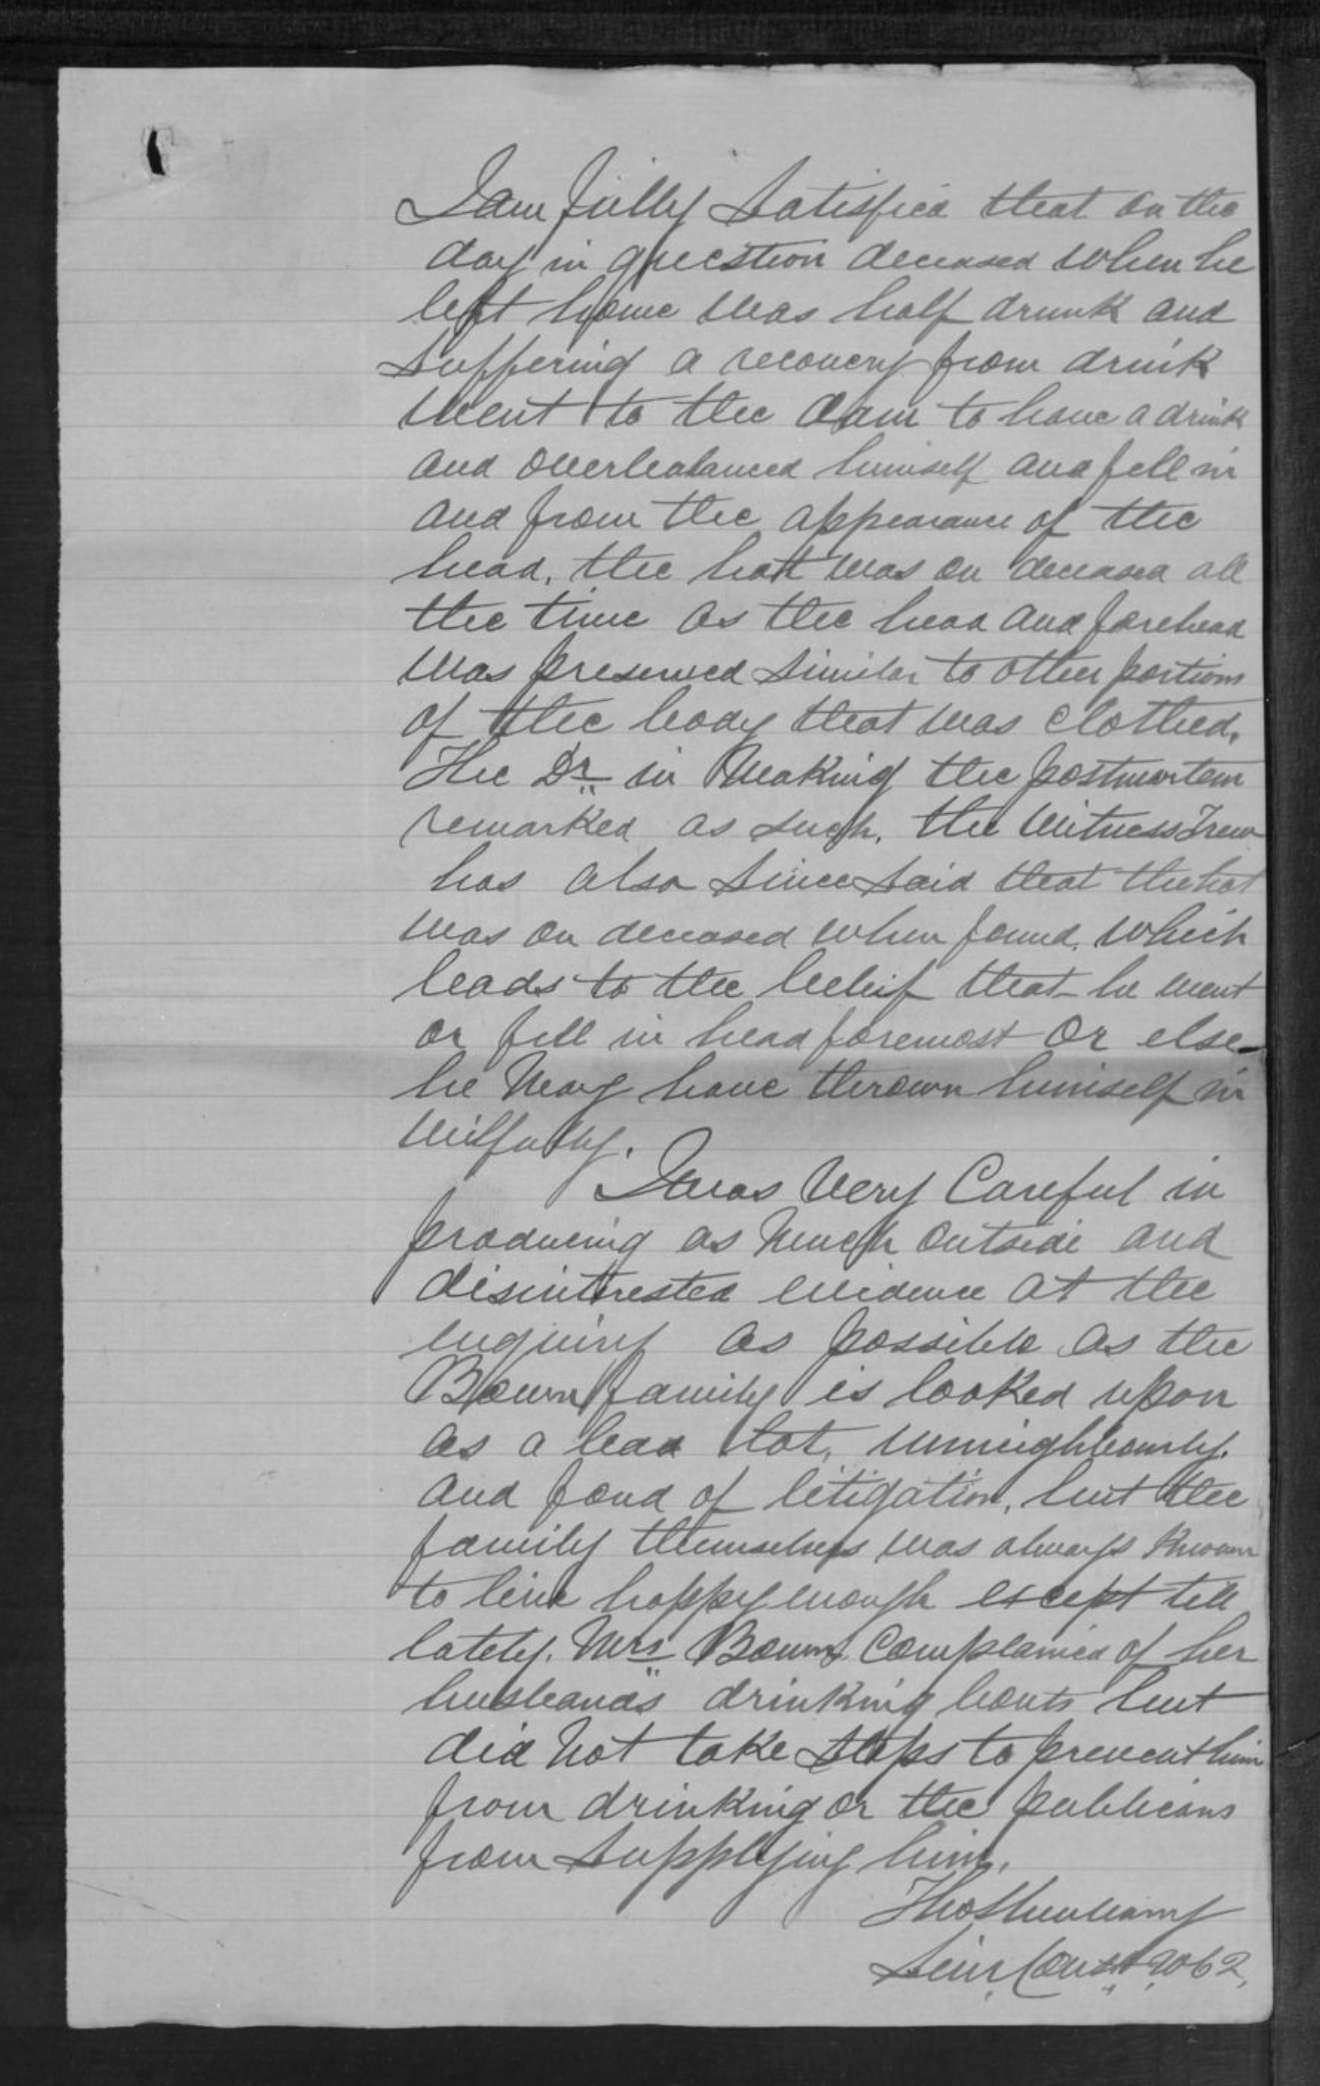 I am fully satisfied that on the
day in question deceased when he
left home was half drunk and
suffering a recovery from drink
went to the dam to have a drink
and overbalanced himself and fell in
and from the appearance of the
head, the hat was on deceased all
the time as the head and forehead
was preserved similar to other portions
of the body that was clothed.
The Dr in making the postmortem
remarked as such, the witness Trew
has also since said that the hat
was on deceased when found, which
leads to the beleif that he went
or fell in head foremost or else
he may have thrown himself in
wilfully.
I was very careful in
producing as much outside and
disintrested evidence at the
enquiry as possible as the
Bown family is looked upon
as a bad lot, unneighbourly.
and fond of litigation, but the
family themselves was always known
to live happy enough except till
lately. Mrs Bown complained of her
husband's drinking bouts but
did not take steps to prevent him
from drinking or the publicans
from supplying him.
Thos
Senr Const 2062,